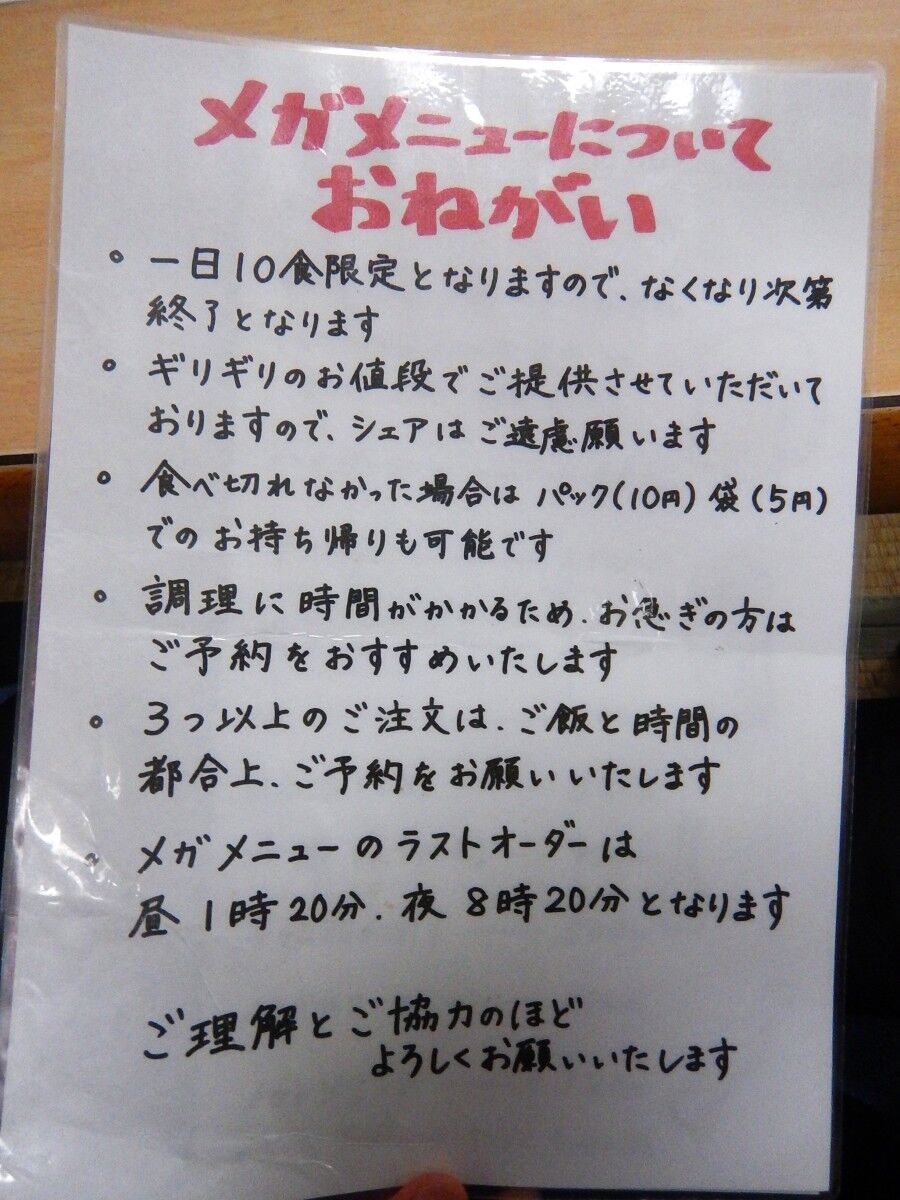 メガメニューについて
おねがい
。一日10食限定となりますので、なくなり次第
終了となります
。ギリギリのお値段でご提供させていただいて
おりますので、シェアはご遠慮願います
。食べ切れなかった場合はパック(10円)袋(5円)
でのお持ち帰りも可能です
。調理に時間がかかるため、お急ぎの方は
ご予約をおすすめいたします
。3つ以上のご注文は、ご飯と時間の
都合上、ご予約をお願いいたします
。メガメニューのラストオーダーは
昼1時20分、夜8時20分となります
ご理解とご協力のほど
よろしくお願いいたします